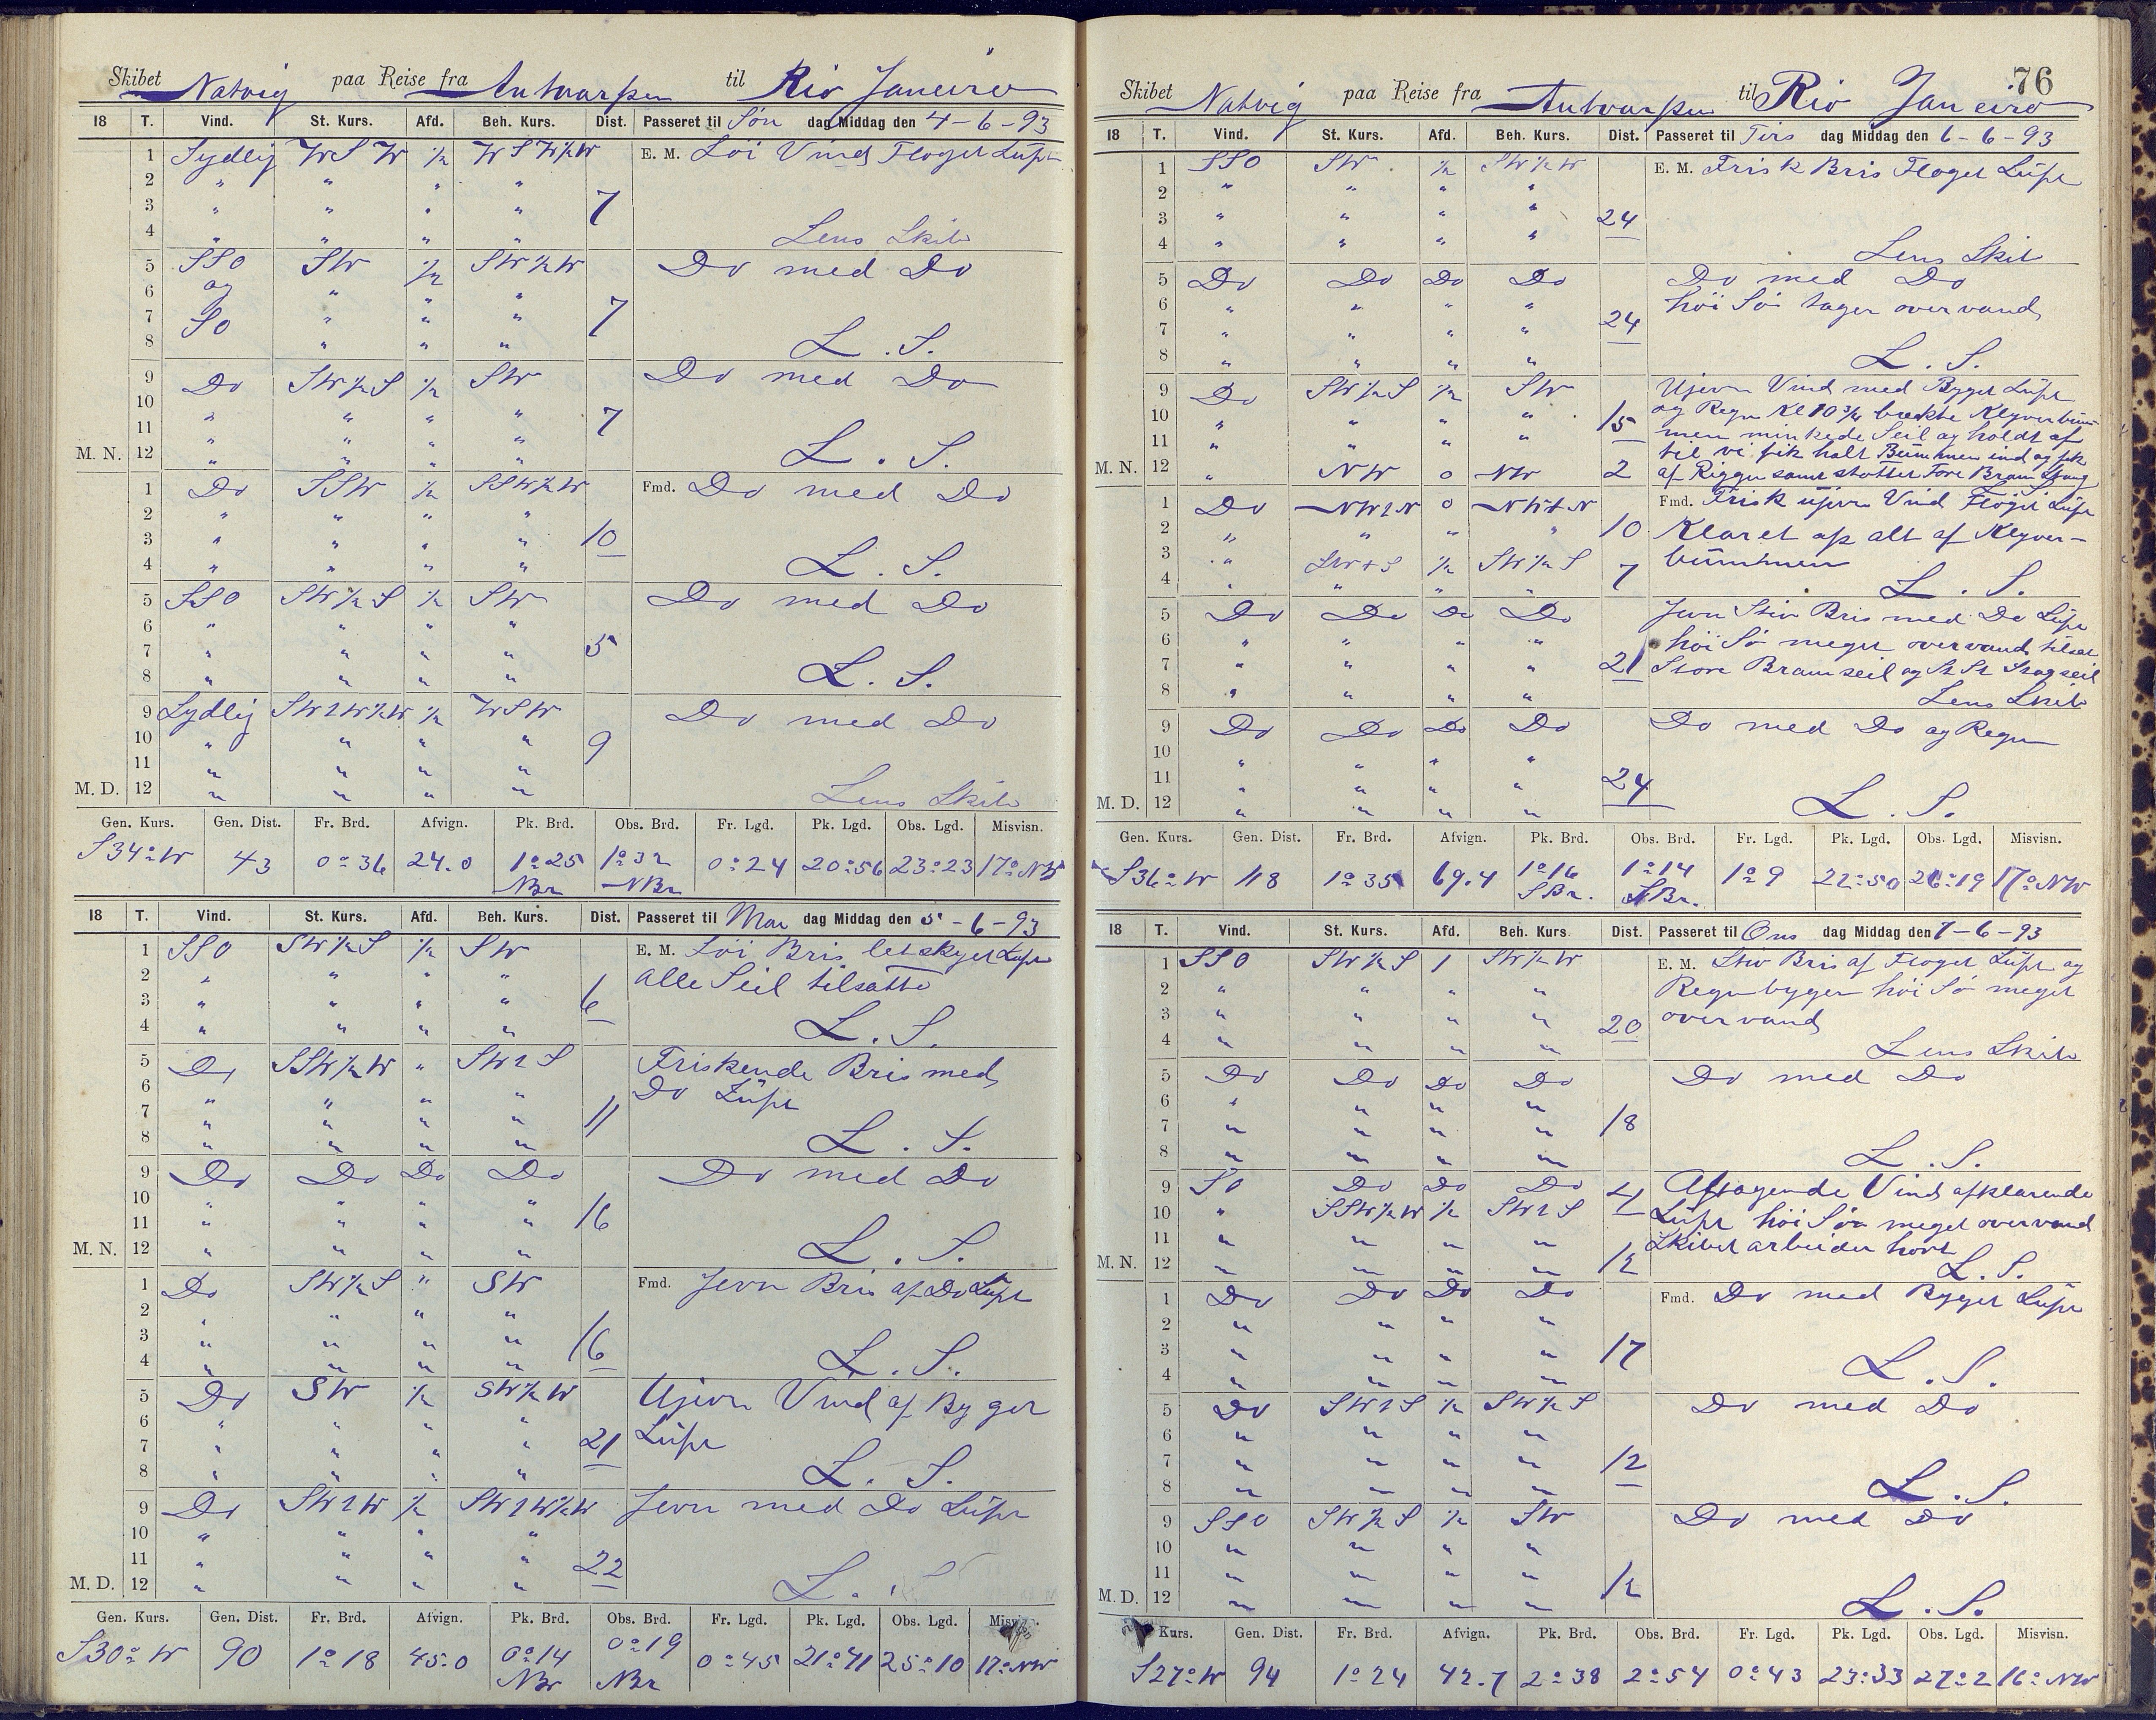 Skibet Natvig paa Reise fra Antwarpen til Rio Janeiro
18 T. Vind. St. Kurs. Afd. Beh. Kurs. Dist. Passeret til Søn dag Middag den 4-6-93
1 Sydlig WSW ½ WSW½W E. M. Löi Vind Floget Lüft
2 " " " "
3 " " " " 7
4 " " " " Lens Skib
5 SSO SW ½ SW½W Do med Do
6 og " " "
7 SO " " " 7
8 " " " L. S.
9 Do SW½S ½ SW Do med Do
10 " " " "
11 " " " " 7
M. N. 12 " " " " L. S.
1 Do SSW ½ SSW½W Fmd. Do med Do
2 " " " "
3 " " " " 10
4 " " " " L. S.
5 SSO SW½S ½ SW Do med Do
6 " " " "
7 " " " " 5
8 " " " " L. S.
9 Sydlig SW2W½W ½ WSW Do med Do
10 " " " " 9
11 " " " "
M. D. 12 " " " " Lens Skib
Gen. Kurs. Gen. Dist. Fr. Brd. Afvign. Pk. Brd. Obs. Brd. Fr. Lgd. Pk. Lgd. Obs. Lgd. Misvisn.
S34°W 43 0°36 24.0 1°25 NBr 1°32 NBr 0°24 20°56 23°23 17°NW
18 T. Vind. St. Kurs. Afd. Beh. Kurs. Dist. Passeret til Man dag Middag den 5-6-93
1 SSO SW½S ½ SW E. M. Löi Bris letskyet Lüft
2 " " " " alle Seil tilsatte
3 " " " " 6
4 " " " " L. S.
5 Do SSW½W " SW2S Friskende Bris med
6 " " " " Do Lüft
7 " " " " 11
8 " " " " L. S.
9 Do Do Do Do Do med Do
10 " " " "
11 " " " " 16
M. N. 12 " " " " L. S.
1 Do SW½S " SW Fmd. Jevn Bris af Do Lüft
2 " " " "
3 " " " " 16
4 " " " " L. S.
5 Do SW ½ SW½W Ujevn Vind af Byger
6 " " " " Lüft
7 " " " " 21
8 " " " " L. S.
9 Do SW2W ½ SW2W½W Jevn med Do Lüft
10 " " " "
11 " " " " 22
M. D. 12 " " " " L. S.
Gen. Kurs. Gen. Dist. Fr. Brd. Afvign. Pk. Brd. Obs. Brd. Fr. Lgd. Pk. Lgd. Obs. Lgd. Misvisn.
S30°W 90 1°18 45.0 0°14 NBr 0°19 NBr 0°45 21°41 25°10 17°NW
76
Skibet Natvig paa Reise fra Antwarpen til Rio Janeiro
18 T. Vind. St. Kurs. Afd. Beh. Kurs. Dist. Passeret til Tirs dag Middag den 6-6-93
1 SSO SW ½ SW½W E. M. Frisk Bris Floget Lüft
2 " " " "
3 " " " " 24
4 " " " " Lens Skib
5 Do Do Do Do Do med Do
6 " " " " höi Sö tager overvand
7 " " " " 24
8 " " " " L. S.
9 Do SW½S ½ SW Ujevn Vind med Byget Lüft
10 " " " " 15 og Regn Kl 10¾ brækte Klyverbüm-
11 " " " " men minkede Seil og holdt af
til vi fik halt Bümmen ind og fik
M. N. 12 " NW 0 NW 2 af Riggen samt støttet Fore Bram Stang
1 Do NW2N 0 NW+N Fmd. Frisk ujevn Vind Flöget Lüft
2 " " " " 10 Klaret op alt af Klyver-
3 " SW+S ½ SW½S bümmen
4 " " " " 7 L. S.
5 Do Do Do Do Jevn Stiv Bris med Do Lüft
6 " " " " höi Sö meget overvand tilsat
7 " " " " 21 Store Bramseil og St St Stagseil
8 " " " " Lens Skib
9 Do Do Do Do Do med Do og Regn
10 " " " "
11 " " " " 24
M. D. 12 " " " " L. S.
Gen. Kurs. Gen. Dist. Fr. Brd. Afvign. Pk. Brd. Obs. Brd. Fr. Lgd. Pk. Lgd. Obs. Lgd. Misvisn.
S36°W 118 1°35 69.4 1°16 SBr. 1°14 SBr. 1°9 22°50 26°19 17°NW
18 T. Vind. St. Kurs. Afd. Beh. Kurs. Dist. Passeret til Ons dag Middag den 7-6-93
1 SSO SW½S 1 SW½W E. M. Stiv Bris af Floget Lüft og
2 " " " " Regnbyger höi Sö meget
3 " " " " 20 overvand
4 " " " " Lens Skib
5 Do Do Do Do Do med Do
6 " " " "
7 " " " " 18
8 " " " " L. S.
9 SO Do Do Do 4 Aftagende Vind afklarende
10 " SSW½W ½ SW2S Lüft höi Sö meget overvand
11 " " " " Skibet arbeider hort
M. N. 12 " " " " 12 L. S.
1 Do Do Do Do Fmd. Do med Byget Lüft
2 " " " "
3 " " " " 17
4 " " " " L. S.
5 Do SW2S ½ SW½S Do med Do
6 " " " "
7 " " " " 12
8 " " " " L. S.
9 SSO SW½S ½ SW Do med Do
10 " " " "
11 " " " " 12
M. D. 12 " " " " L. S.
Kurs. Gen. Dist. Fr. Brd. Afvign. Pk. Brd. Obs. Brd. Fr. Lgd. Pk. Lgd. Obs. Lgd. Misvisn.
S27°W 94 1°24 42.7 2°38 2°54 0°43 23°33 27°2 16°NW